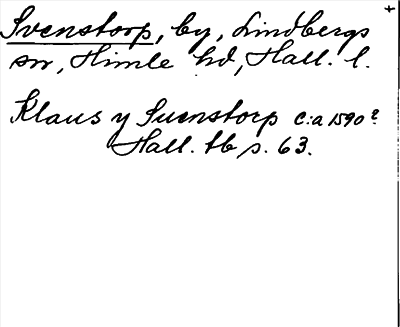 Svenstorp, by, Lindbergs
sn, Himle hd, Hall. l.
Klaus y Suenstorp c:a 1590?
Hall. tb s. 63.